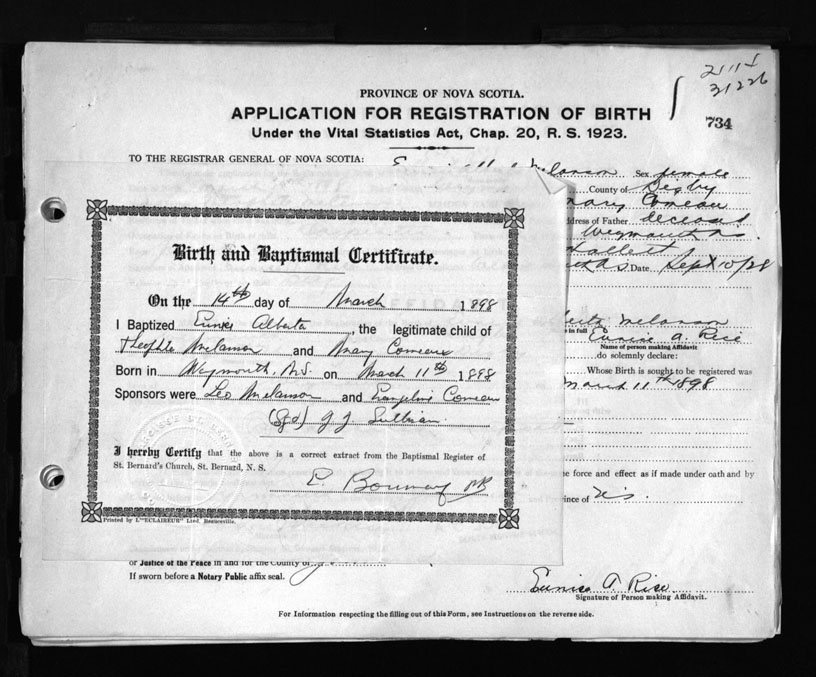 2114
31226
PROVINCE OF NOVA SCOTIA.
APPLICATION FOR REGISTRATION OF BIRTH
734
Under the Vital Statistics Act, Chap. 20, R. S. 1923.
TO THE REGISTRAR GENERAL OF NOVA SCOTIA:
Melanson Sex female
County of Digby
Mary Comeau
ddress of Father deceased
Weymouth N.S.
Date Sept 10/28
Birth and Baptismal Certificate.
On the 14th day of March 1898
I Baptized Eunice Alberta, the legitimate child of
Theophile Melanson and Mary Comeau
Born in Weymouth, N.S. on March 11th 1898
Sponsors were Leo Melanson and Evangeline Comeau
(Sgd) J J Sullivan
I hereby Certify that the above is a correct extract from the Baptismal Register of
St. Bernard's Church, St. Bernard, N. S.
Printed by L'"ECLAIREUR" Lted. Beauceville.
Melanson
in full Eunice A. Rice
Name of person making Affidavit
do solemnly declare:
Whose Birth is sought to be registered was
March 11th 1898
e force and effect as if made under oath and by
vince of N.S.
or Justice of the Peace in and for the County of
If sworn before a Notary Public affix seal.
Eunice A. Rice
Signature of Person making Affidavit.
For Information respecting the filling out of this Form, see Instructions on the reverse side.